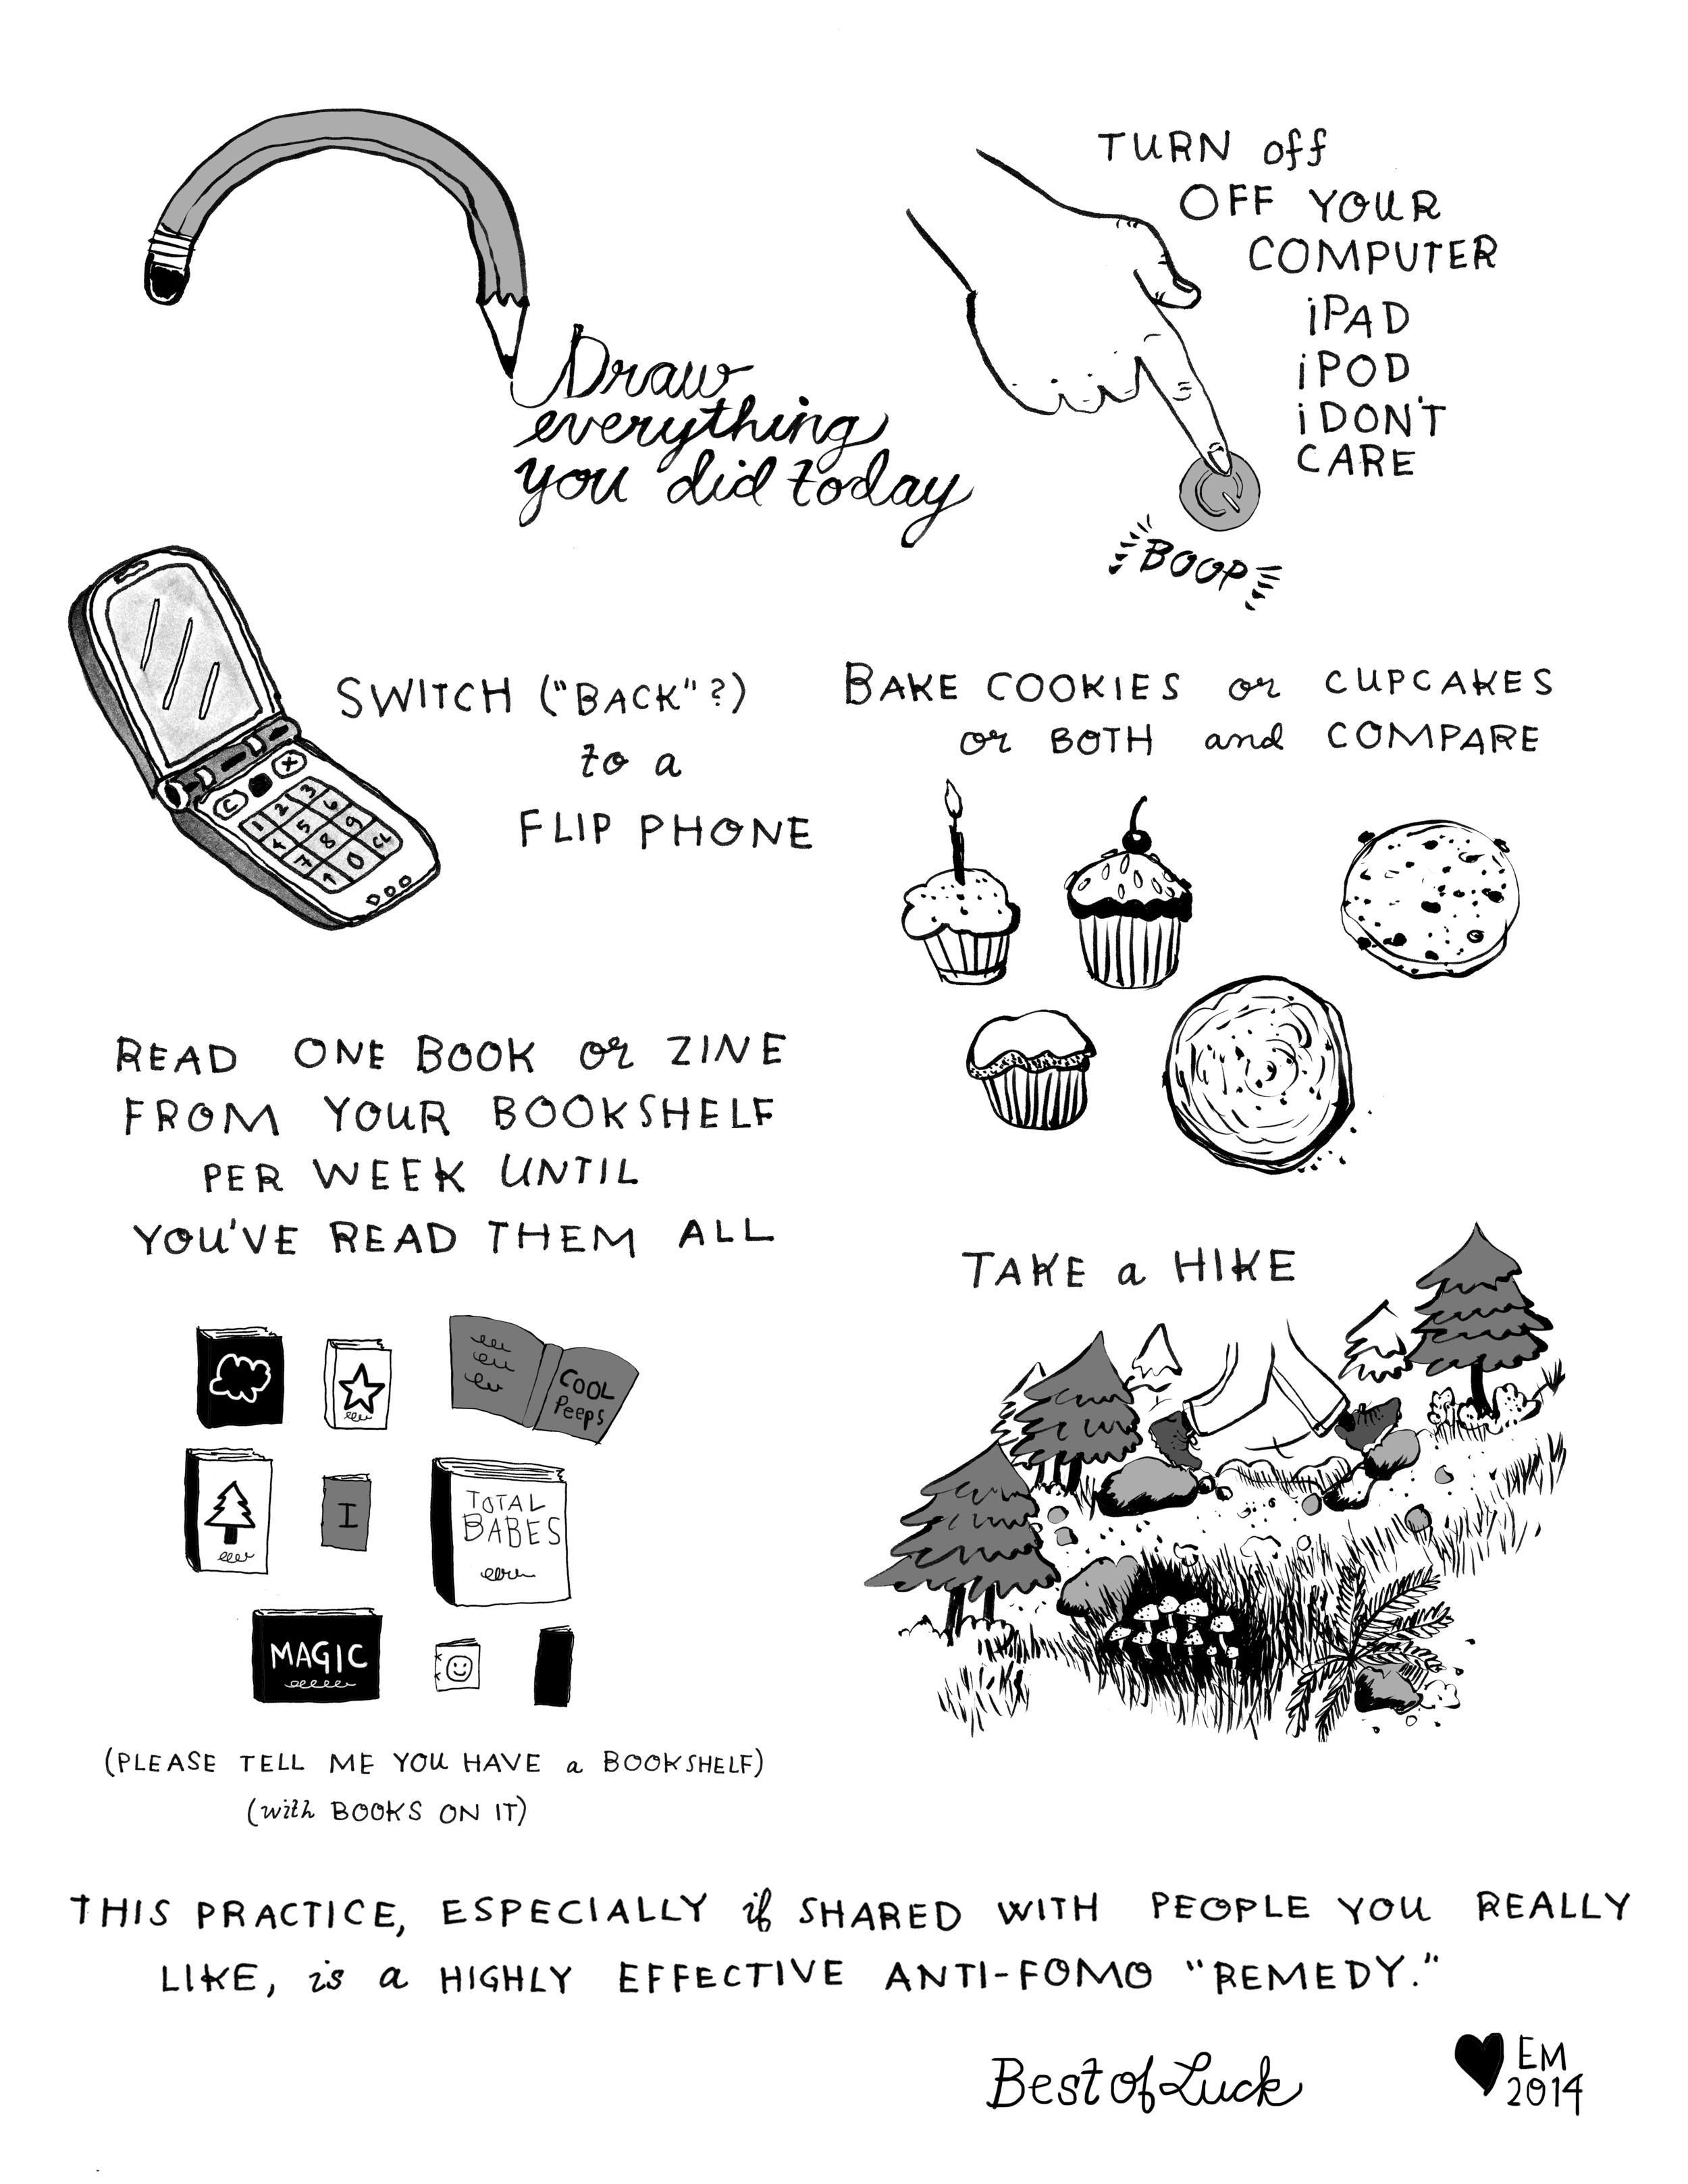 Draw
everything
you did today
TURN off
OFF YOUR
COMPUTER
iPAD
iPOD
i DON'T
CARE
BOOP
SWITCH ("BACK"?)
to a
FLIP PHONE
C
X
1 2 3
4 5 6
7 8 9
↑ 0 CL
BAKE COOKIES or CUPCAKES
or BOTH and COMPARE
READ ONE BOOK or ZINE
FROM YOUR BOOKSHELF
PER WEEK UNTIL
YOU'VE READ THEM ALL
COOL
Peeps
I
TOTAL
BABES
MAGIC
(PLEASE TELL ME YOU HAVE a BOOKSHELF)
(with BOOKS ON IT)
TAKE a HIKE
THIS PRACTICE, ESPECIALLY if SHARED WITH PEOPLE YOU REALLY
LIKE, is a HIGHLY EFFECTIVE ANTI-FOMO "REMEDY."
Best of Luck
♥ EM
2014